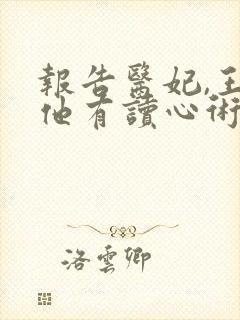 報告醫妃,王
他有讀心術
洛雲卿